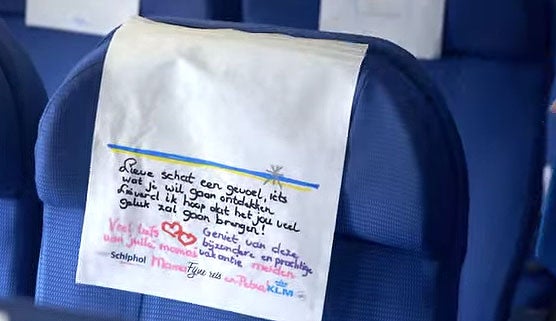 Lieve schat een gevoel, iets
wat je wil gaan ontdekken
Lieverd ik hoop dat het jou veel
geluk zal gaan brengen!
Veel liefs Geniet van deze
van jullie mama's bijzondere en prachtige
vakantie meiden
Schiphol Mama Fijne reis en Petra KLM